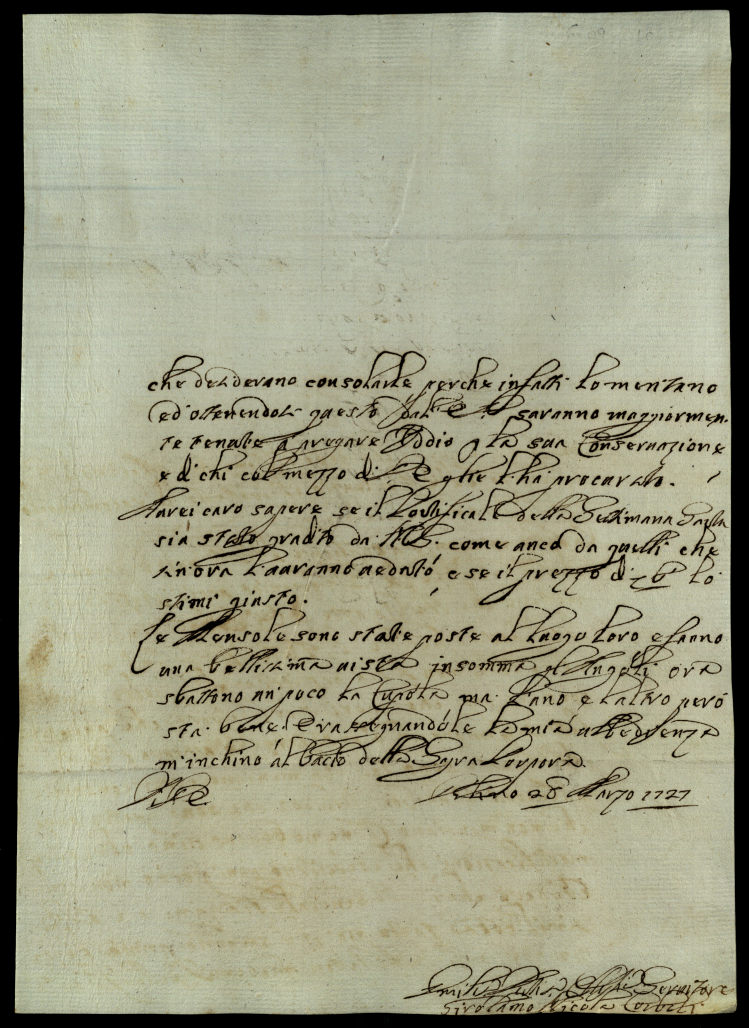 che desiderano consolarle perche in fatti lo meritano
ed ottenendosi questo dall' E. saranno maggiormen-
te tenute a pregare Iddio p la sua Conservazione
e di chi col mezzo di V.E. glie l'ha procurato.
Harei caro sapere se il Pontificale della Settimana Santa
sia stato gradito da come anco da quelli che
sin'ora l'auranno ueduto, e se il prezzo di lo
stimi giusto.
Le Mensole sono state poste al luogo loro e fanno
una bellissima uista insomma gl'Angoli ora
sbattono un poco la Cupola ma l'uno e l'altro però
sta bene. E rassegnandole la mia ubbedienza
m'inchino al bacio della Sagra Porpora.
V.E. Urbino 28 Marzo 1727
Servitore
Girolamo Nicola